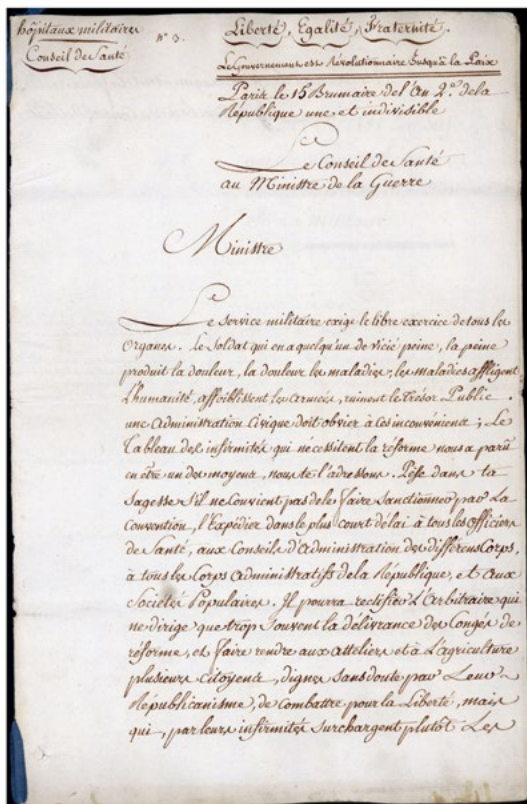 hôpitaux militaires
Conseil de Santé
N° 3.
Liberté, Egalité, Fraternité.
Le Gouvernement est Révolutionnaire Jusqu'à la Paix
Paris le 15 Brumaire de l'An 2.e de la
République une et indivisible
Le Conseil de Santé
au Ministre de la Guerre
Ministre
Le service militaire exige le libre exercice de tous les
Organes. Le Soldat qui en a quelqu'un de vicié peine, la peine
produit la douleur, la douleur les maladies; les maladies affligent
L'humanité, affoiblissent les armées, ruinent le Trésor Public.
une Administration Civique doit obvier à ces inconvéniens; Le
Tableau des infirmités qui nécessitent la réforme nous a paru
en être un des moyens, nous te l'adressons. Pèse dans ta
sagesse s'il ne convient pas de le faire sanctionner par La
Convention, l'Expédier dans le plus court délai à tous les officiers
de Santé, aux Conseils d'Administration des différens Corps,
à tous les Corps Administratifs de la République, et aux
Sociétés Populaires. Il pourra rectifier L'Arbitraire qui
ne dirige que trop souvent la délivrance des Congés de
réforme, et faire rendre aux atteliers et à L'agriculture
plusieurs citoyens, dignes sans doute par Leur
Républicanisme, de combattre pour la Liberté, mais
qui, par leurs infirmités surchargent plutôt Les